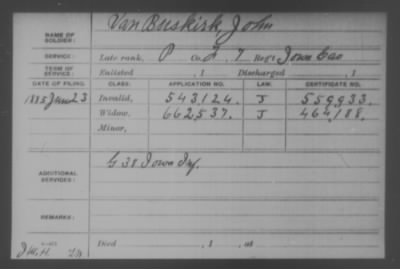 Van Buskirk, John
NAME OF SOLDIER:
SERVICE: Late rank, P Co. F. 7 Reg't Iowa Cav
TERM OF SERVICE: Enlisted , 1 Discharged , 1
DATE OF FILING. CLASS. APPLICATION NO. LAW. CERTIFICATE NO.
1885 Jan 23 Invalid, 543,124. J 559,933.
Widow, 662,537. J 464,188.
Minor,
ADDITIONAL SERVICES: G 38 Iowa Inf.
REMARKS:
Died , 1 , at